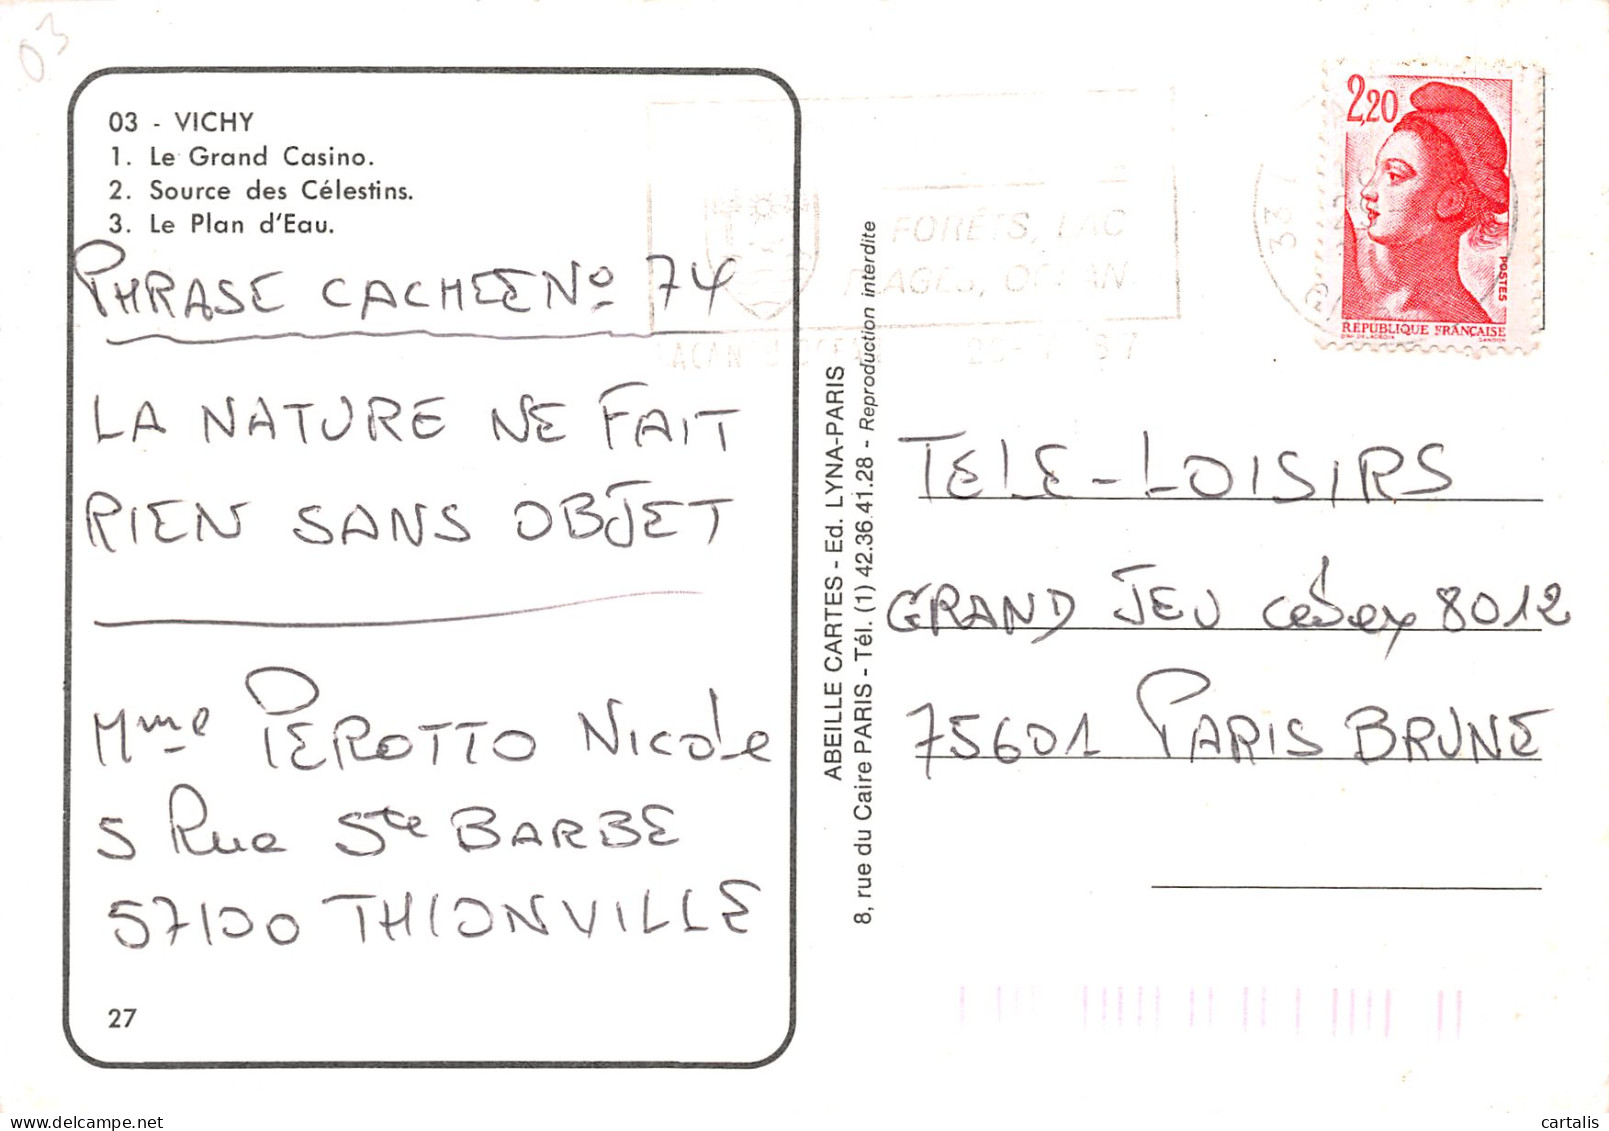 03
03 - VICHY
1. Le Grand Casino.
2. Source des Célestins.
3. Le Plan d'Eau.
PHRASE CACHEE No 74
LA NATURE NE FAIT
RIEN SANS OBJET
Mme PEROTTO Nicole
5 Rue Ste BARBE
57100 THIONVILLE
27
ABEILLE CARTES - Ed. LYNA-PARIS
8, rue du Caire PARIS - Tél. (1) 42.36.41.28 - Reproduction interdite
FORÊTS, LAC
33
2,20
POSTES
RÉPUBLIQUE FRANÇAISE
D'AP. DELACROIX GANDON
TELE-LOISIRS
GRAND JEU cédex 8012
75601 PARIS BRUNE
delcampe.net
cartalis